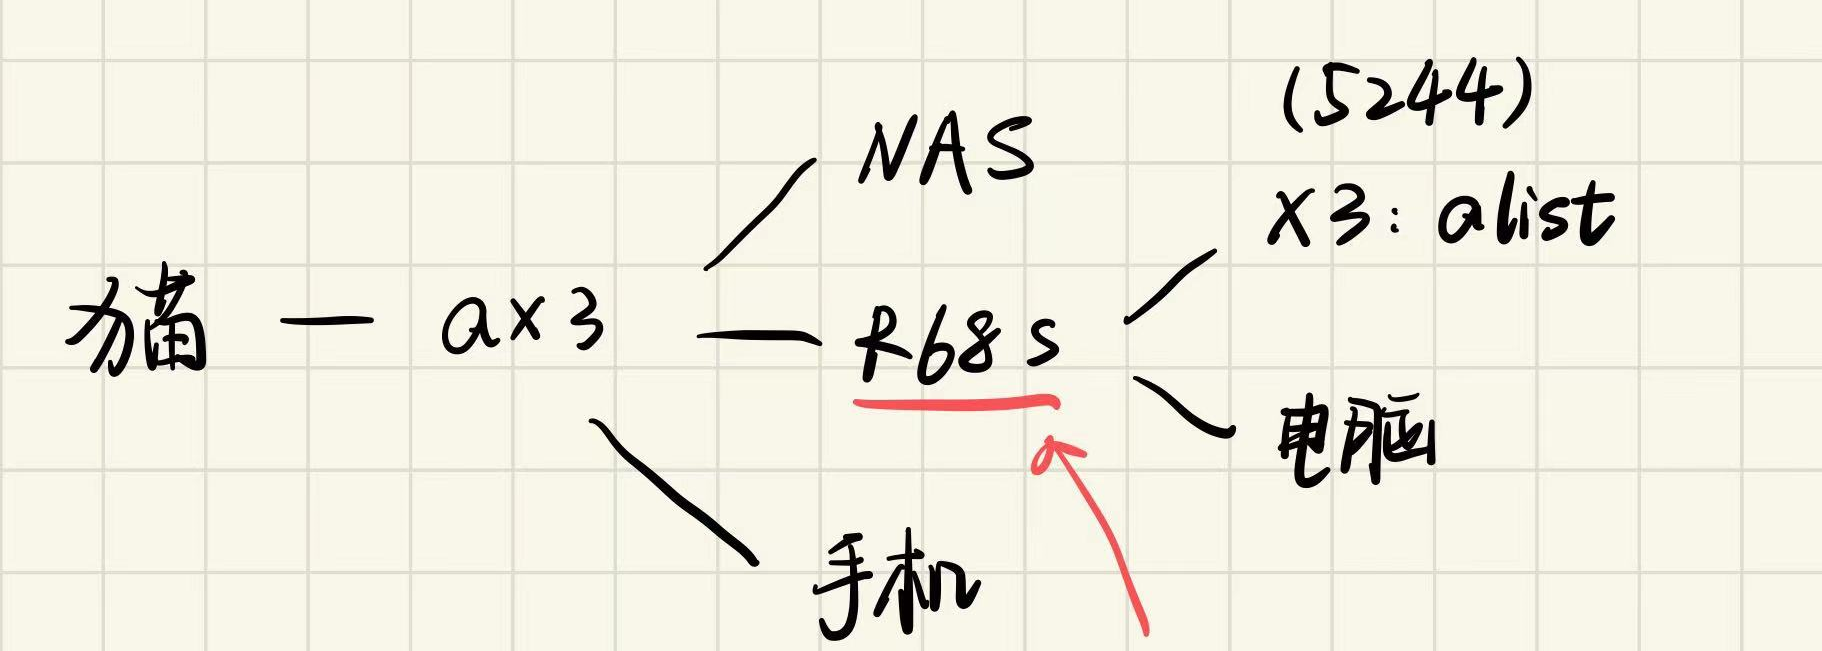 猫
ax3
NAS
R68s
手机
(5244)
X3: alist
电脑